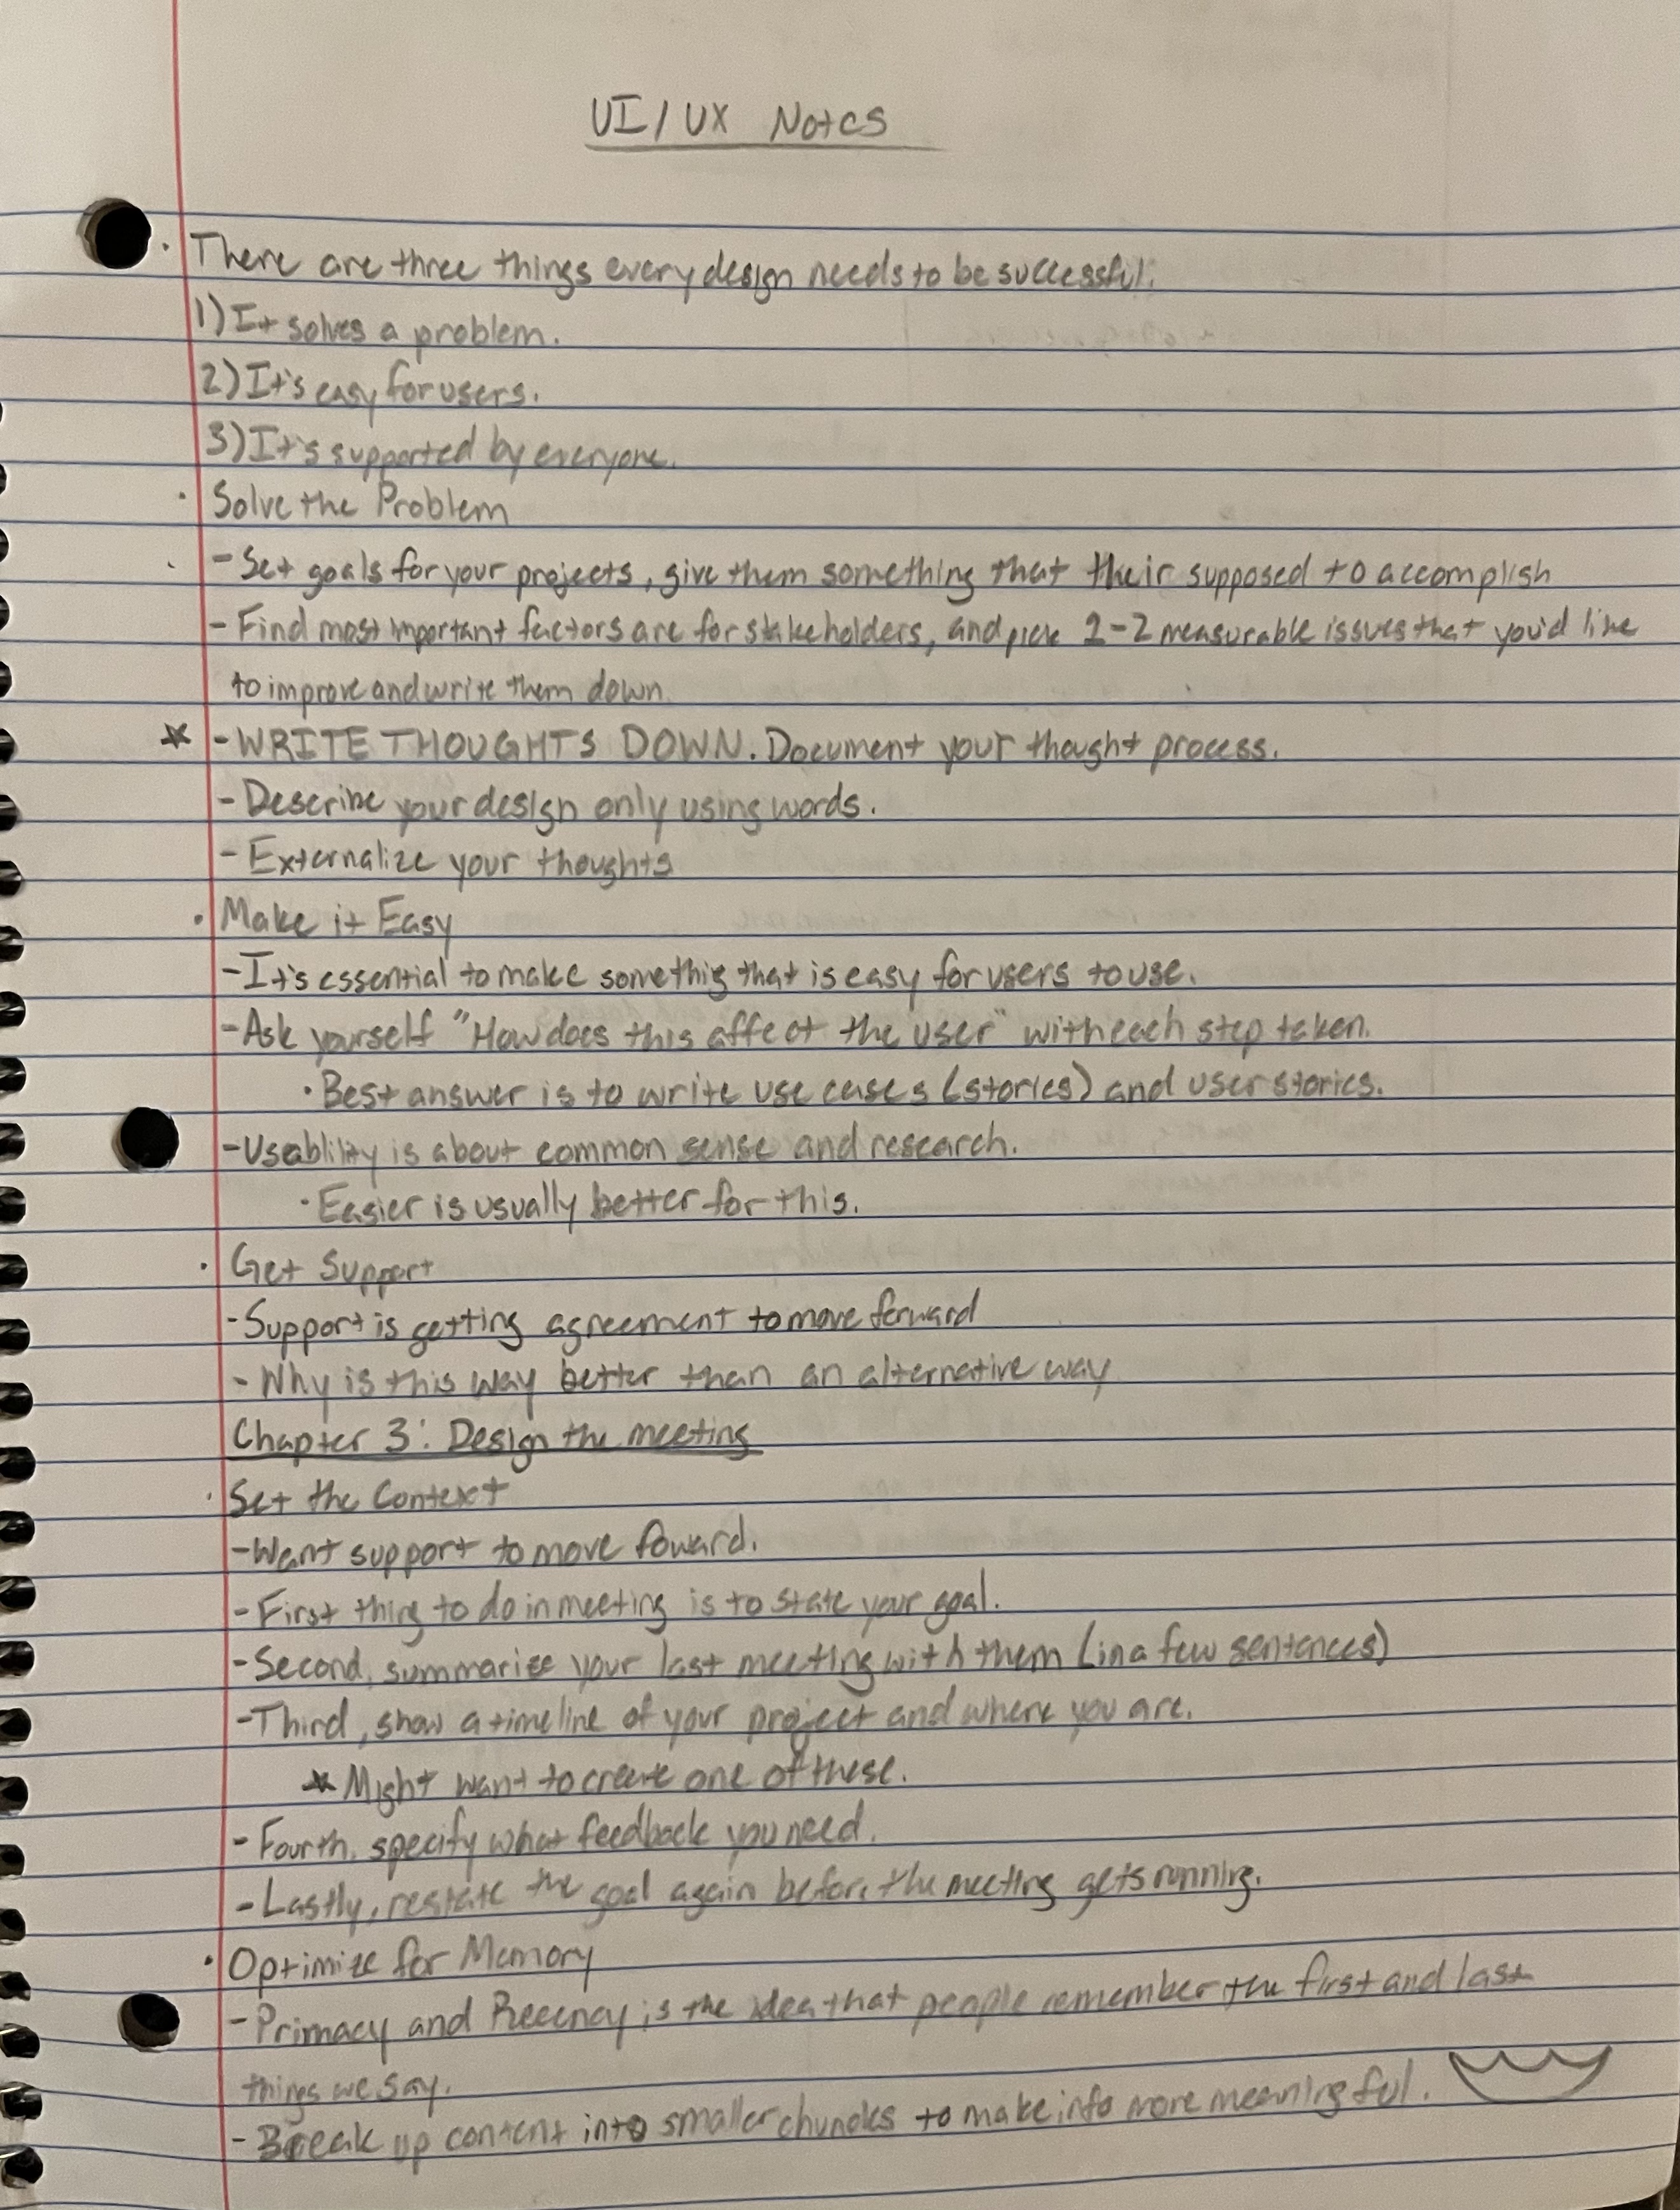 UI/UX Notes
· There are three things every design needs to be successful.
1) It solves a problem.
2) It's easy for users.
3) It's supported by everyone.
· Solve the Problem
- Set goals for your projects, give them something that their supposed to accomplish
- Find most important factors are for stakeholders, and pick 1-2 measurable issues that you'd like
to improve and write them down.
★ - WRITE THOUGHTS DOWN. Document your thought process.
- Describe your design only using words.
- Externalize your thoughts
· Make it Easy
- It's essential to make somethig that is easy for users to use.
- Ask yourself "How does this affect the user" with each step taken.
· Best answer is to write use cases (stories) and user stories.
- Usablility is about common sense and research.
· Easier is usually better for this.
· Get Support
- Support is getting agreement to move forward
- Why is this way better than an alternative way
Chapter 3: Design the meeting
· Set the Context
- Want support to move foward.
- First thing to do in meeting is to state your goal.
- Second, summarize your last meeting with them (in a few sentences)
- Third, show a timeline of your project and where you are.
★ Might want to create one of these.
- Fourth, specify what feedback you need.
- Lastly, restate the goal again before the meeting gets running.
· Optimize for Memory
- Primacy and Recency is the idea that people remember the first and last
things we say.
- Break up content into smaller chuncks to make info more meaningful.